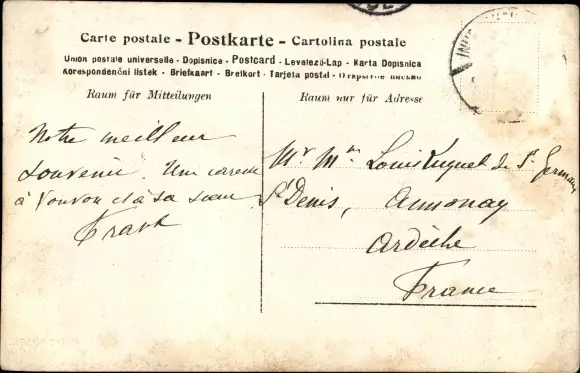 Carte postale - Postkarte - Cartolina postale
Union postale universelle - Dopisnice - Postcard - Levelező-Lap - Karta Dopisnica
Korespondenční lístek - Briefkaart - Brefkort - Tarjeta postal - Открытое письмо
Raum für Mitteilungen
Raum nur für Adresse
Notre meilleur
souvenir. Une caresse
à Vouvou et à sa sœur
Frank
Mr Mme Louis de St Germany
St Denis, Annonay
Ardèche
France